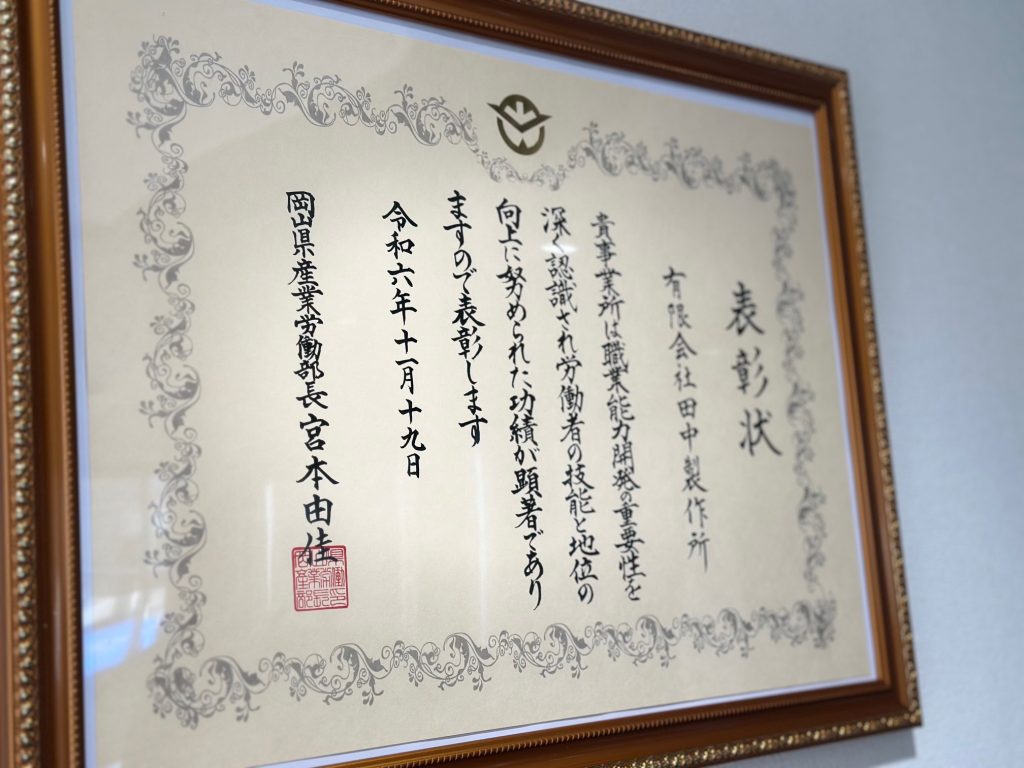 表彰状
有限会社田中製作所
貴事業所は職業能力開発の重要性を
深く認識され労働者の技能と地位の
向上に努められた功績が顕著であり
ますので表彰します
令和六年十一月十九日
岡山県産業労働部長宮本由佳